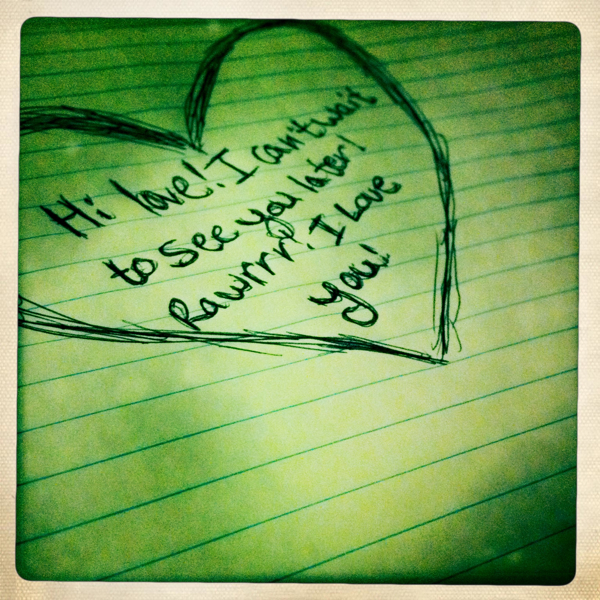 Hi love! I can't wait
to see you later!
Rawrrr! I Love
You!